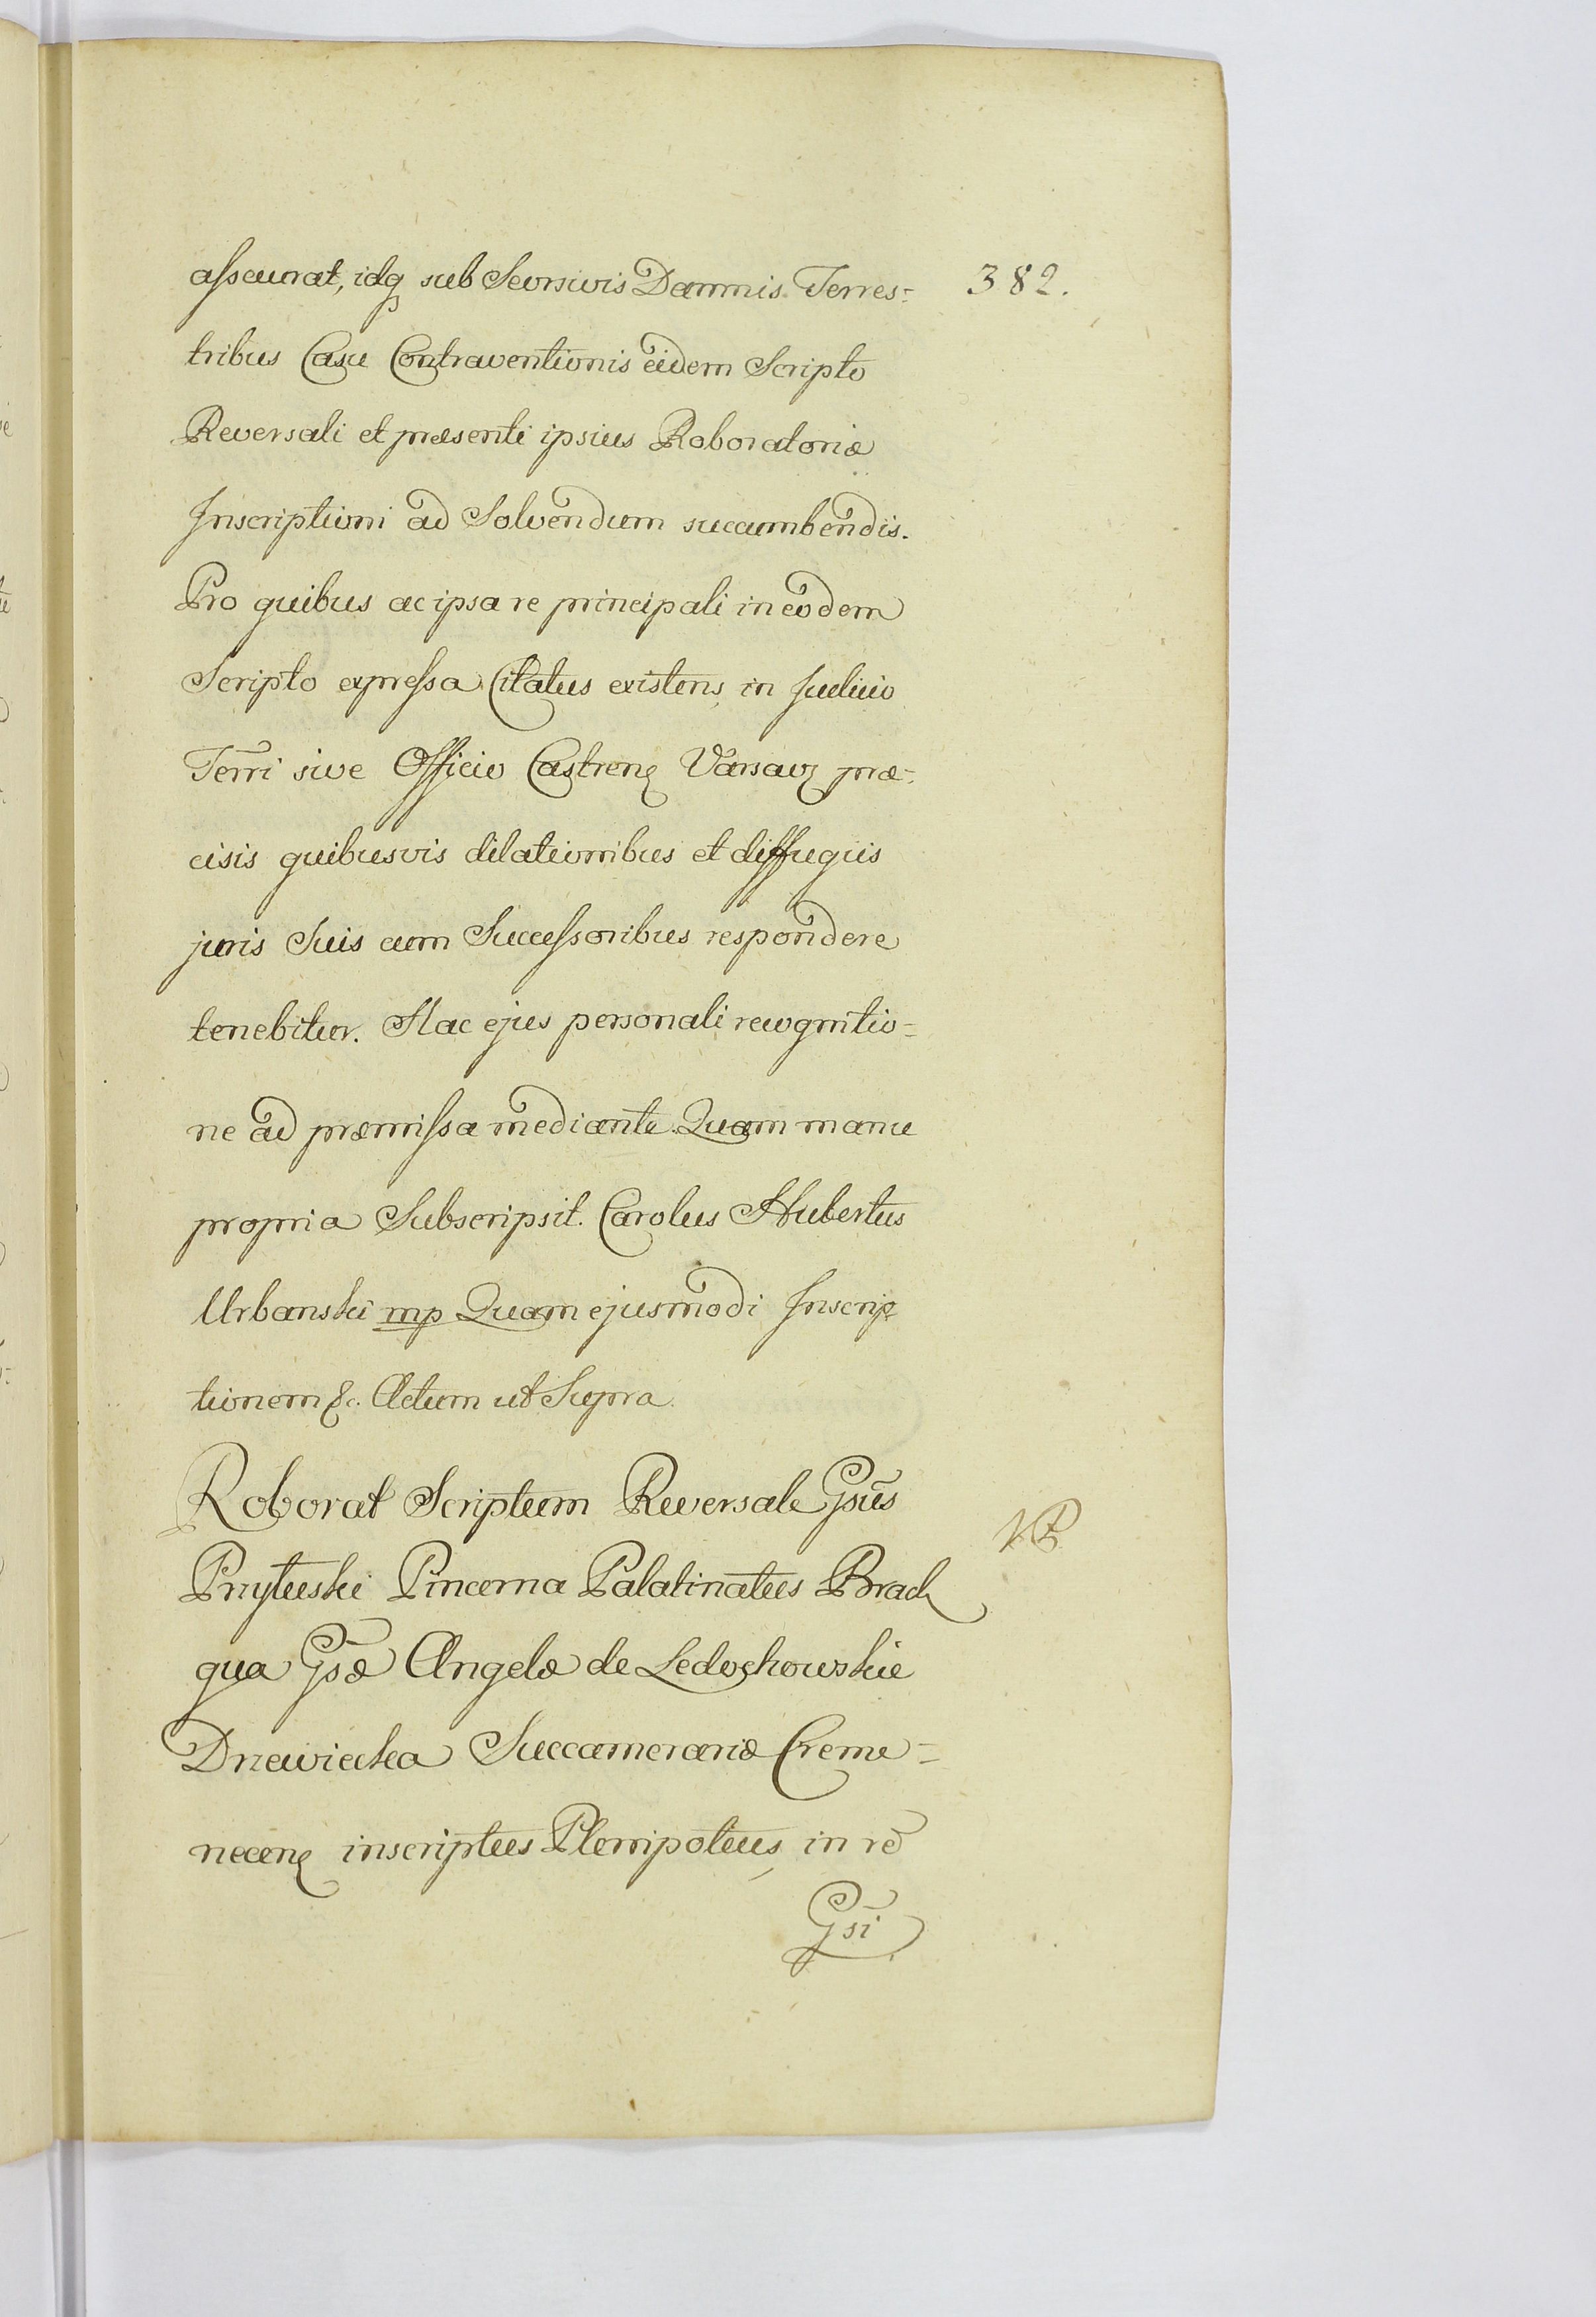 assecurat, idq̃ sub Seorsivis Damnis Terres=
382.
tribus Casu Contraventionis eidem Scripto
Reversali et præsenti ipsius Roboratoriæ
Inscriptioni ad Solvendum succumbendis.
Pro quibus ac ipsa re principali in eodem
Scripto expressa Citatus existens, in Judicio
Terri sive Officio Castren Varsav præ=
cisis quibusvis dilationibus et diffugiis
juris Suis cum Successoribus respondere
tenebitur. Hac ejus personali recognitio=
ne ad præmissa mediante. Quam manu
propria Subscripsit. Carolus Hubertus
Urbanski mp Quam ejusmodi Inscrip
tionem &c. Actum ut Supra.
Roborat Scriptum Reversale Gsũs
Przyłuski Pincerna Palatinatus Bracł
qua Gsæ Angelæ de Ledochowskie
Drzewiecka Succamerariæ Creme=
necen inscriptus Plenipoteus, in rẽ
Gsi